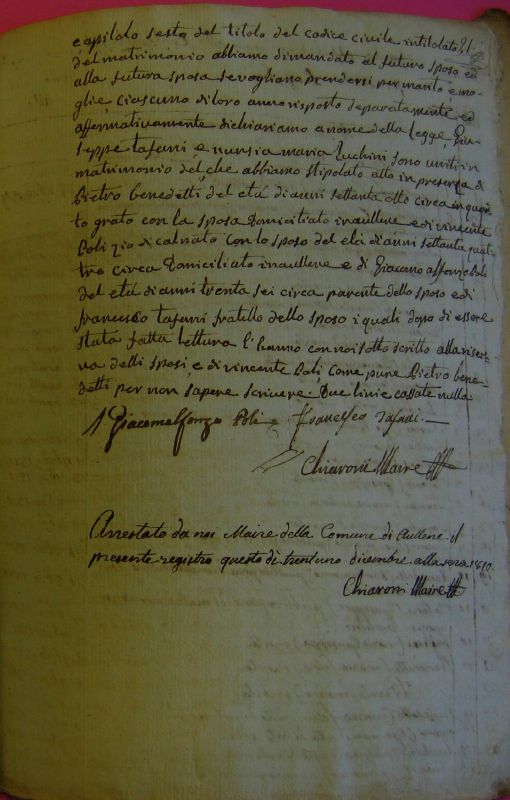 capitolo sesto del titolo del codice civile intitolata
del matrimonio abbiamo dimandato al futuro sposo ed
alla futura sposa se vogliano prendersi per marito e mo-
glie, ciascuno di loro anno risposto separatamente ed
affermativamente dichiariamo a nome della legge, Giu-
seppe tafani e nunsia maria Luchini sono uniti in
matrimonio del che abbiamo stipolato atto in presenza di
Pietro benedetti del età di anni settanta otto circa in quar-
to grato con la sposa Domiciliato in aullene e di vincente
Poli zio di calviato con lo sposo del età di anni settanta quat-
tro circa Domiciliato in aullene e di Giacomo alfonzo Poli
del età di anni trenta sei circa parente dello sposo e di
francesco tafani fratello dello sposo i quali dopo di essere
stata fatta lettura l'hanno con noi sotto scritto alla riser-
va delli sposi, e di vincente Poli, come pure Pietro bene-
detti per non sapere scrivere Due linie cassate nulla
Giacomalfonzo Poli Francesco Tafani
Chiaroni Maire
Arrestato da noi Maire della Comune di Aullene il
presente registro questo dì trent'uno dicembre alla sera 1810.
Chiaroni Maire